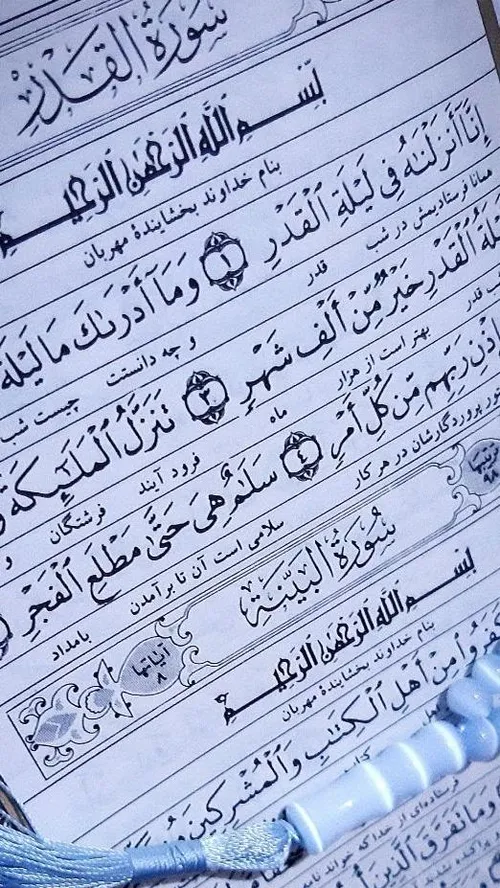 سُورَةُ الْقَدْرِ
بِسْمِ اللَّهِ الرَّحْمَٰنِ الرَّحِيمِ
بنام خداوند بخشایندهٔ مهربان
إِنَّآ أَنزَلْنَٰهُ فِي لَيْلَةِ ٱلْقَدْرِ ١ وَمَآ أَدْرَىٰكَ مَا لَيْلَةُ
همانا فرستادیمش در شب قدر و چه دانستت چیست شب
ٱلْقَدْرِ خَيْرٌ مِّنْ أَلْفِ شَهْرٍ ٣ تَنَزَّلُ ٱلْمَلَٰٓئِكَةُ
قدر بهتر است از هزار ماه فرود آیند فرشتگان و
رَبِّهِم مِّن كُلِّ أَمْرٍ ٤ سَلَٰمٌ هِيَ حَتَّىٰ مَطْلَعِ ٱلْفَجْرِ
پروردگارشان در هر کار سلامی است آن تا برآمدن بامداد
سُورَةُ الْبَيِّنَةِ
آیاتها ٨
بِسْمِ اللَّهِ الرَّحْمَٰنِ الرَّحِيمِ
بنام خداوند بخشایندهٔ مهربان
مِنْ أَهْلِ ٱلْكِتَٰبِ وَٱلْمُشْرِكِينَ
فرستاده‌ای از خدا که خواند نامه
وَمَا تَفَرَّقَ ٱلَّذِينَ